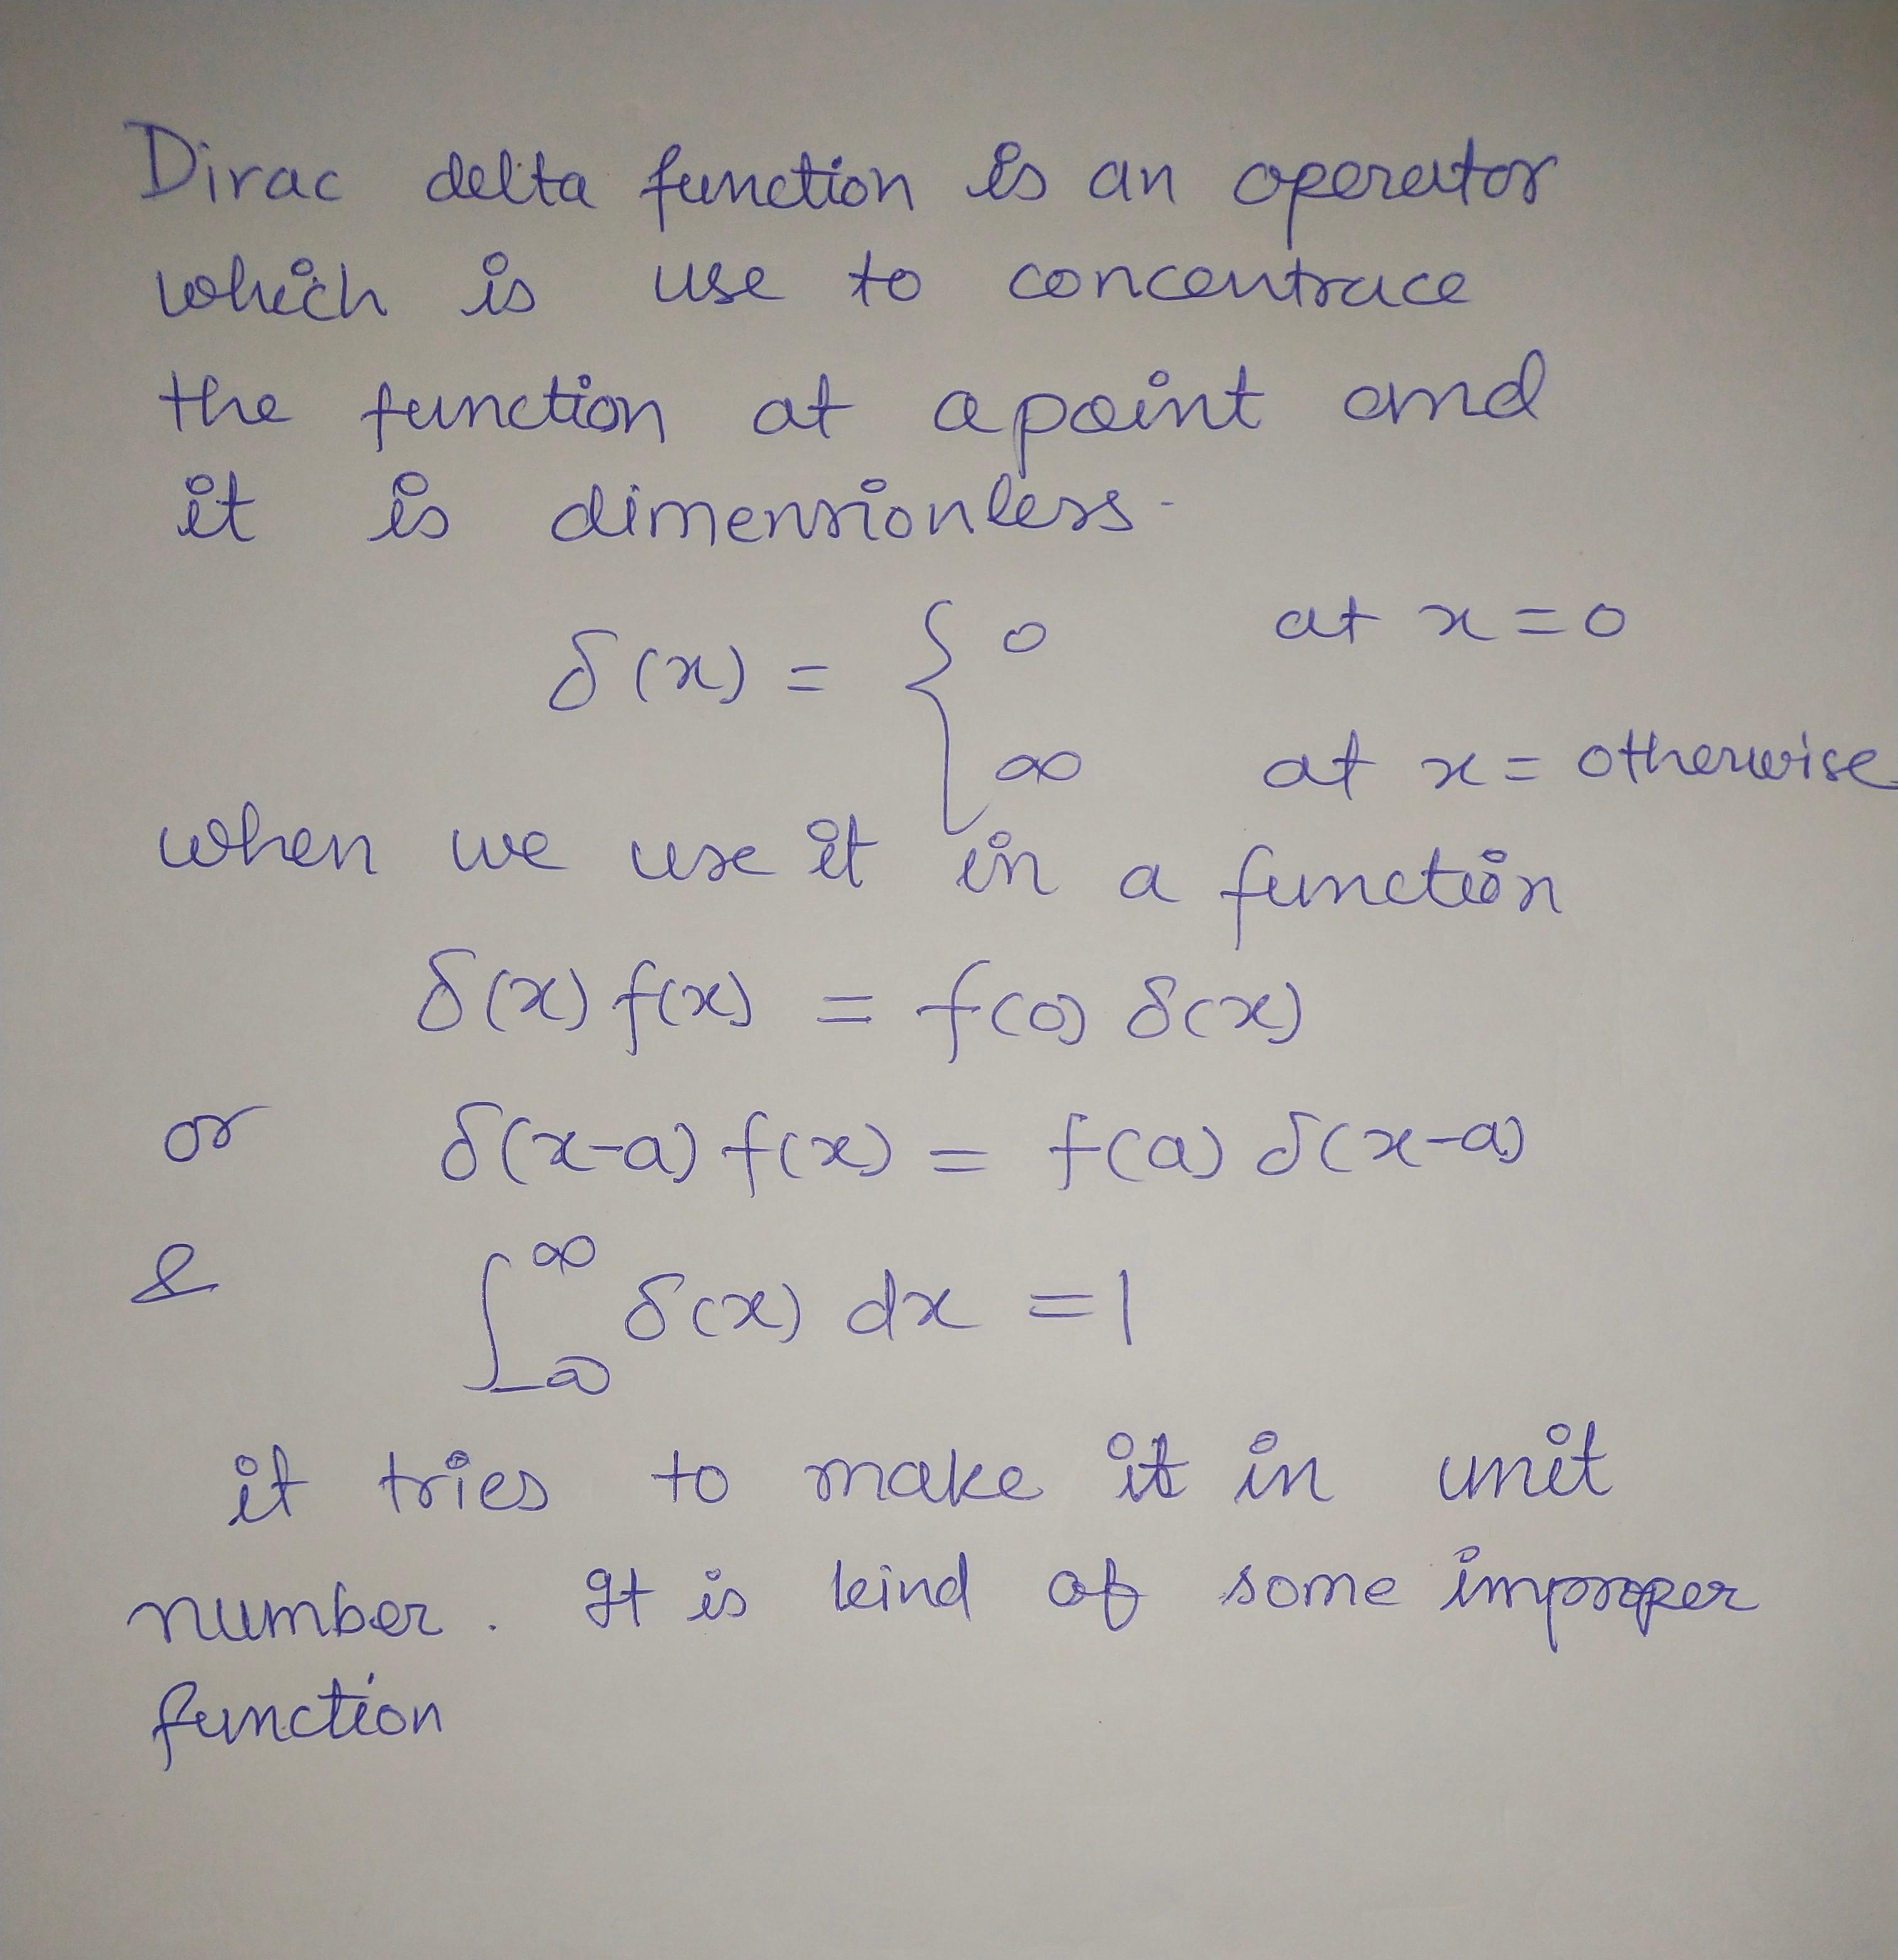 Dirac delta function is an operator
which is use to concentrace
the function at a point and
it is dimensionless.
δ(x) = { 0 at x = 0
∞ at x = otherwise
when we use it in a function
δ(x) f(x) = f(0) δ(x)
or δ(x-a) f(x) = f(a) δ(x-a)
& ∫_{-∞}^{∞} δ(x) dx = 1
it tries to make it in unit
number. It is kind of some improper
function